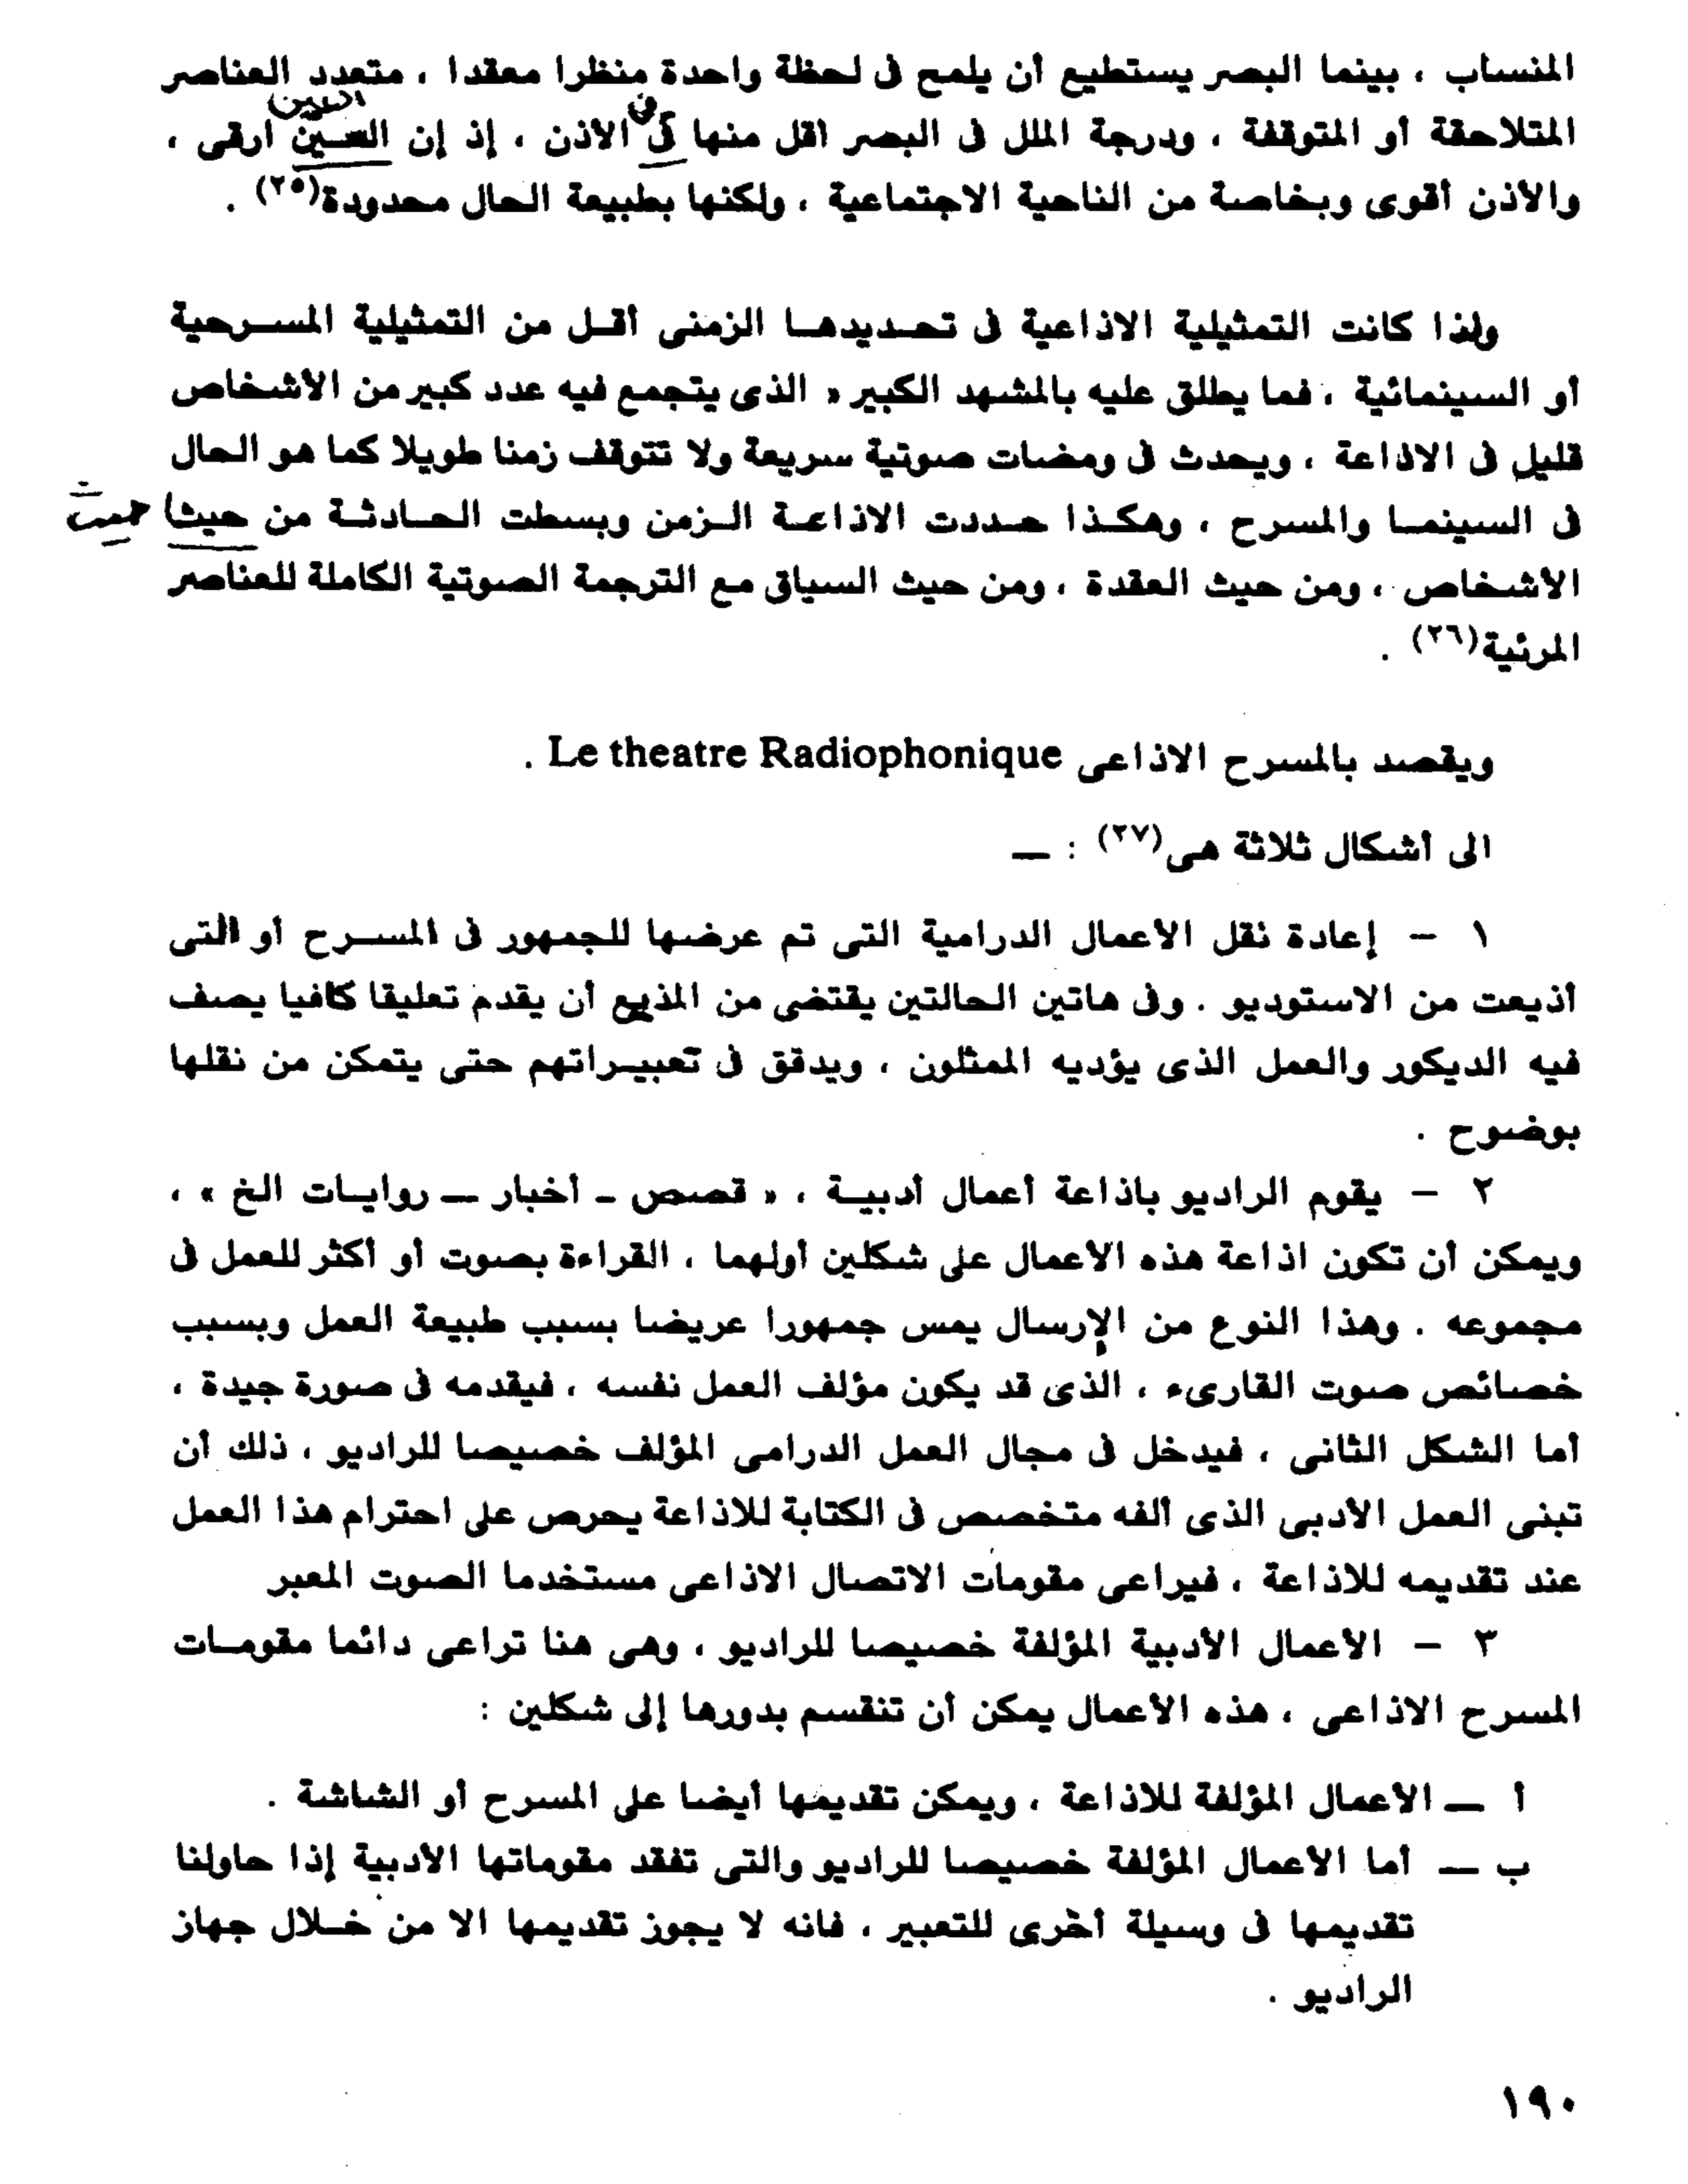 المنساب ، بينما البصر يستطيع أن يلمح فى لحظة واحدة منظرا معقدا ، متعدد العناصر
العين
فى
المتلاحقة أو المتوقفة ، ودرجة الملل فى البصر اقل منها فى الأذن ، إذ إن السين ارقى ،
والأذن أقوى وبخاصة من الناحية الاجتماعية ، ولكنها بطبيعة الحال محدودة(٢٥) .
ولذا كانت التمثيلية الاذاعية فى تحـديدهـا الزمنى أقـل من التمثيلية المسـرحية
أو السينمائية ، فما يطلق عليه بالمشهد الكبير » الذى يتجمع فيه عدد كبير من الأشخاص
قليل فى الاذاعة ، ويحدث فى ومضات صوتية سريعة ولا تتوقف زمنا طويلا كما هو الحال
فى السينمـا والمسرح ، وهكـذا حـددت الاذاعـة الـزمن وبسطت الحـادثـة من حيث) حيث
الأشخاص ، ومن حيث العقدة ، ومن حيث السياق مع الترجمة الصوتية الكاملة للعناصر
المرئية(٢٦) .
ويقصد بالمسرح الاذاعى Le theatre Radiophonique .
الى أشكال ثلاثة هى(٢٧) : —
١ – إعادة نقل الأعمال الدرامية التى تم عرضها للجمهور فى المسـرح أو التى
أذيعت من الاستوديو . وفى هاتين الحالتين يقتضى من المذيع أن يقدم تعليقا كافيا يصف
فيه الديكور والعمل الذى يؤديه الممثلون ، ويدقق فى تعبيـراتهم حتى يتمكن من نقلها
بوضوح .
٢ – يقوم الراديو باذاعة أعمال أدبيـة ، « قصص - أخبار — روايـات الخ » ،
ويمكن أن تكون اذاعة هذه الأعمال على شكلين أولهما ، القراءة بصوت أو أكثر للعمل فى
مجموعه . وهذا النوع من الإرسال يمس جمهورا عريضا بسبب طبيعة العمل وبسبب
خصائص صوت القارىء ، الذى قد يكون مؤلف العمل نفسه ، فيقدمه فى صورة جيدة ،
أما الشكل الثانى ، فيدخل فى مجال العمل الدرامى المؤلف خصيصا للراديو ، ذلك أن
تبنى العمل الأدبى الذى ألفه متخصص فى الكتابة للاذاعة يحرص على احترام هذا العمل
عند تقديمه للاذاعة ، فيراعى مقومات الاتصال الاذاعى مستخدما الصوت المعبر
٣ – الأعمال الأدبية المؤلفة خصيصا للراديو ، وهى هنا تراعى دائما مقومـات
المسرح الاذاعى ، هذه الأعمال يمكن أن تنقسم بدورها إلى شكلين :
أ — الأعمال المؤلفة للاذاعة ، ويمكن تقديمها أيضا على المسرح أو الشاشة .
ب — أما الأعمال المؤلفة خصيصا للراديو والتى تفقد مقوماتها الأدبية إذا حاولنا
تقديمها فى وسيلة أخرى للتعبير ، فانه لا يجوز تقديمها الا من خـلال جهاز
الراديو .
١٩٠